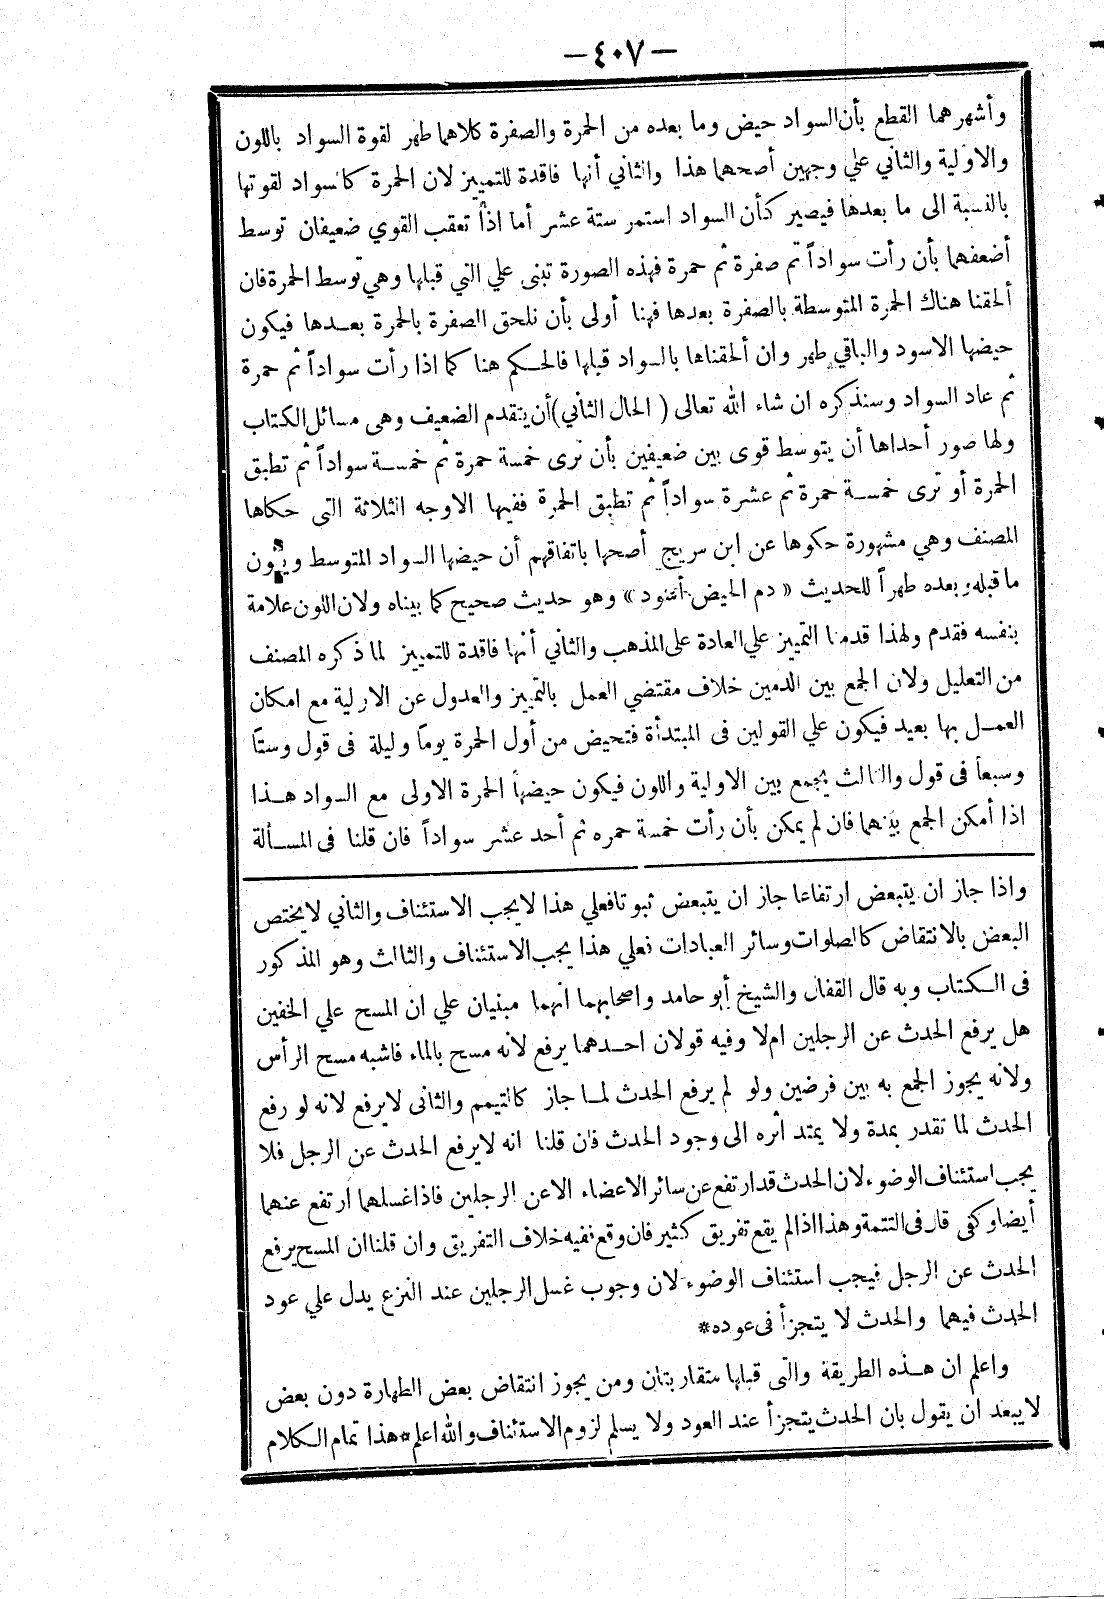 — ٤٠٧ —
وأشهرهما القطع بأن السواد حيض وما بعده من الحمرة والصفرة كلاهما طهر لقوة السواد باللون
والاولية والثاني علي وجهين أصحهما هذا والثاني أنها فاقدة للتمييز لان الحمرة كالسواد لقوتها
بالنسبة الى ما بعدها فيصير كأن السواد استمر ستة عشر أما اذا تعقب القوي ضعيفان توسط
أضعفهما بأن رأت سواداً ثم صفرة ثم حمرة فهذه الصورة تبنى علي التي قبلها وهي توسط الحمرة فان
ألحقنا هناك الحمرة المتوسطة بالصفرة بعدها فهنا أولى بأن نلحق الصفرة بالحمرة بعدها فيكون
حيضها الاسود والباقي طهر وان ألحقناها بالسواد قبلها فالحكم هنا كما اذا رأت سواداً ثم حمرة
ثم عاد السواد وسنذكره ان شاء الله تعالى ( الحال الثاني ) أن يتقدم الضعيف وهى مسائل الكتاب
ولها صور أحداها أن يتوسط قوى بين ضعيفين بأن ترى خمسة حمرة ثم خمسة سواداً ثم تطبق
الحمرة أو ترى خمسة حمرة ثم عشرة سواداً ثم تطبق الحمرة ففيها الاوجه الثلاثة التى حكاها
المصنف وهي مشهورة حكوها عن ابن سريج أصحها باتفاقهم أن حيضها السواد المتوسط ويكون
ما قبله وبعده طهراً للحديث « دم الحيض أسود » وهو حديث صحيح كما بيناه ولان اللون علامة
بنفسه فقدم ولهذا قدمنا التمييز علي العادة على المذهب والثاني أنها فاقدة للتمييز لما ذكره المصنف
من التعليل ولان الجمع بين الدمين خلاف مقتضي العمل بالتمييز والعدول عن الاولية مع امكان
العمل بها بعيد فيكون علي القولين فى المبتدأة فتحيض من أول الحمرة يوما وليلة فى قول وستا
وسبعا فى قول والثالث يجمع بين الاولية واللون فيكون حيضها الحمرة الاولى مع السواد هذا
اذا أمكن الجمع بينهما فان لم يمكن بأن رأت خمسة حمره ثم أحد عشر سواداً فان قلنا فى المسألة
واذا جاز ان يتبعض ارتفاعا جاز ان يتبعض ثبوتا فعلي هذا لا يجب الاستئناف والثاني لا يختص
البعض بالانتقاض كالصلوات وسائر العبادات فعلي هذا يجب الاستئناف والثالث وهو المذكور
فى الكتاب وبه قال القفال والشيخ أبو حامد واصحابهما انهما مبنيان علي ان المسح علي الخفين
هل يرفع الحدث عن الرجلين ام لا وفيه قولان احدهما يرفع لانه مسح بالماء فاشبه مسح الرأس
ولانه يجوز الجمع به بين فرضين ولو لم يرفع الحدث لما جاز كالتيمم والثانى لا يرفع لانه لو رفع
الحدث لما تقدر بمدة ولا يمتد أثره الى وجود الحدث فان قلنا انه لا يرفع الحدث عن الرجل فلا
يجب استئناف الوضوء لان الحدث قد ارتفع عن سائر الاعضاء الا عن الرجلين فاذا غسلهما ارتفع عنهما
أيضا وكفى قال فى التتمة وهذا اذا لم يقع تفريق كثير فان وقع ففيه خلاف التفريق وان قلنا ان المسح يرفع
الحدث عن الرجل فيجب استئناف الوضوء لان وجوب غسل الرجلين عند النزع يدل علي عود
الحدث فيهما والحدث لا يتجزأ فى عوده*
واعلم ان هذه الطريقة والتى قبلها متقاربتان ومن يجوز انتقاض بعض الطهارة دون بعض
لا يبعد ان يقول بان الحدث يتجزأ عند العود ولا يسلم لزوم الاستئناف والله اعلم* هذا تمام الكلام